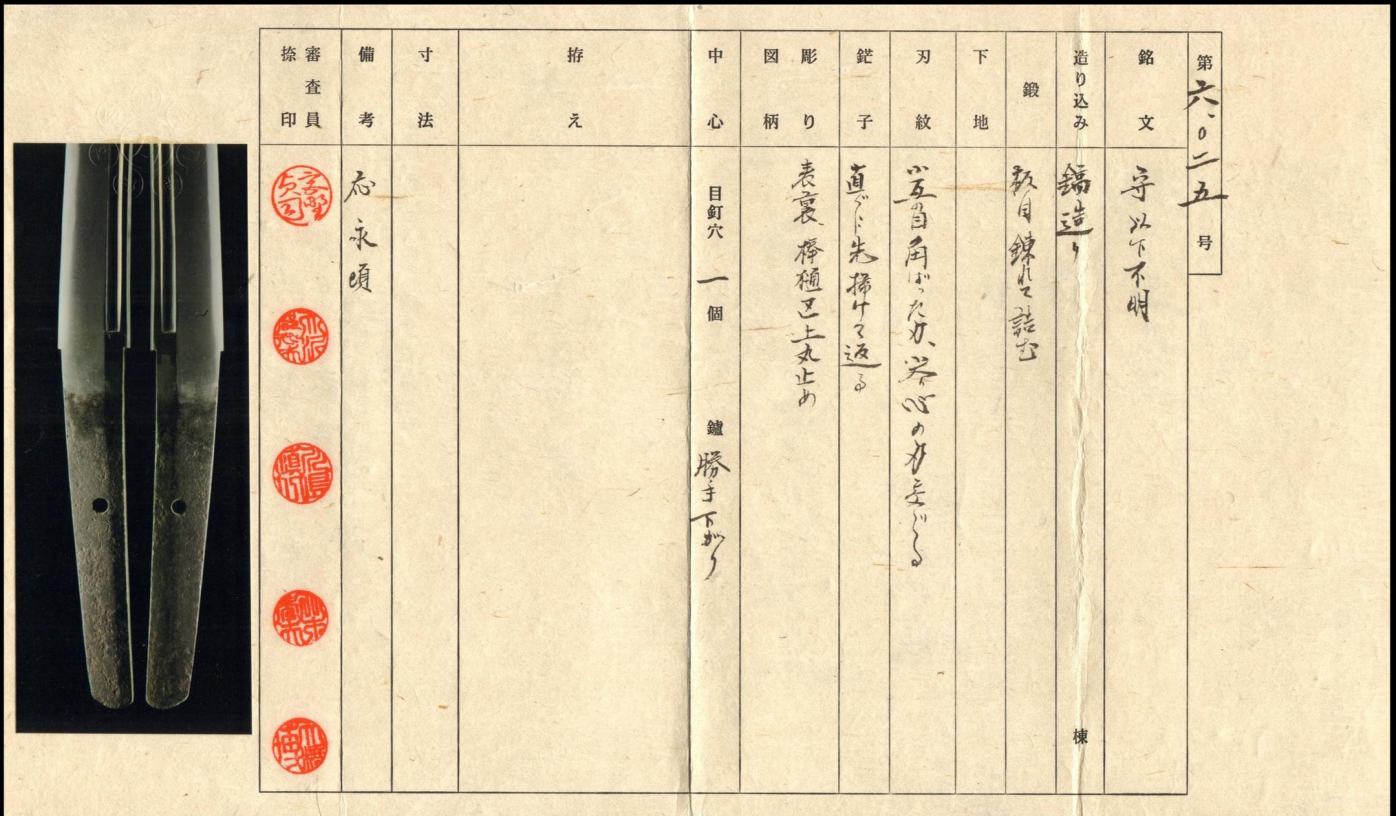 第六、〇二五号
銘文 守以下不明
造り込み 鎬造り 棟
鍛 板目錬れて詰む
下地
刃紋 小互の目角ばった刃、答心の刃交じる
鋩子 直ぐに先掃けて返る
彫り図柄 表裏、棒樋区上丸止め
中心 目釘穴 一個 鑢 勝手下がり
拵え
寸法
備考 応永頃
審査員捺印